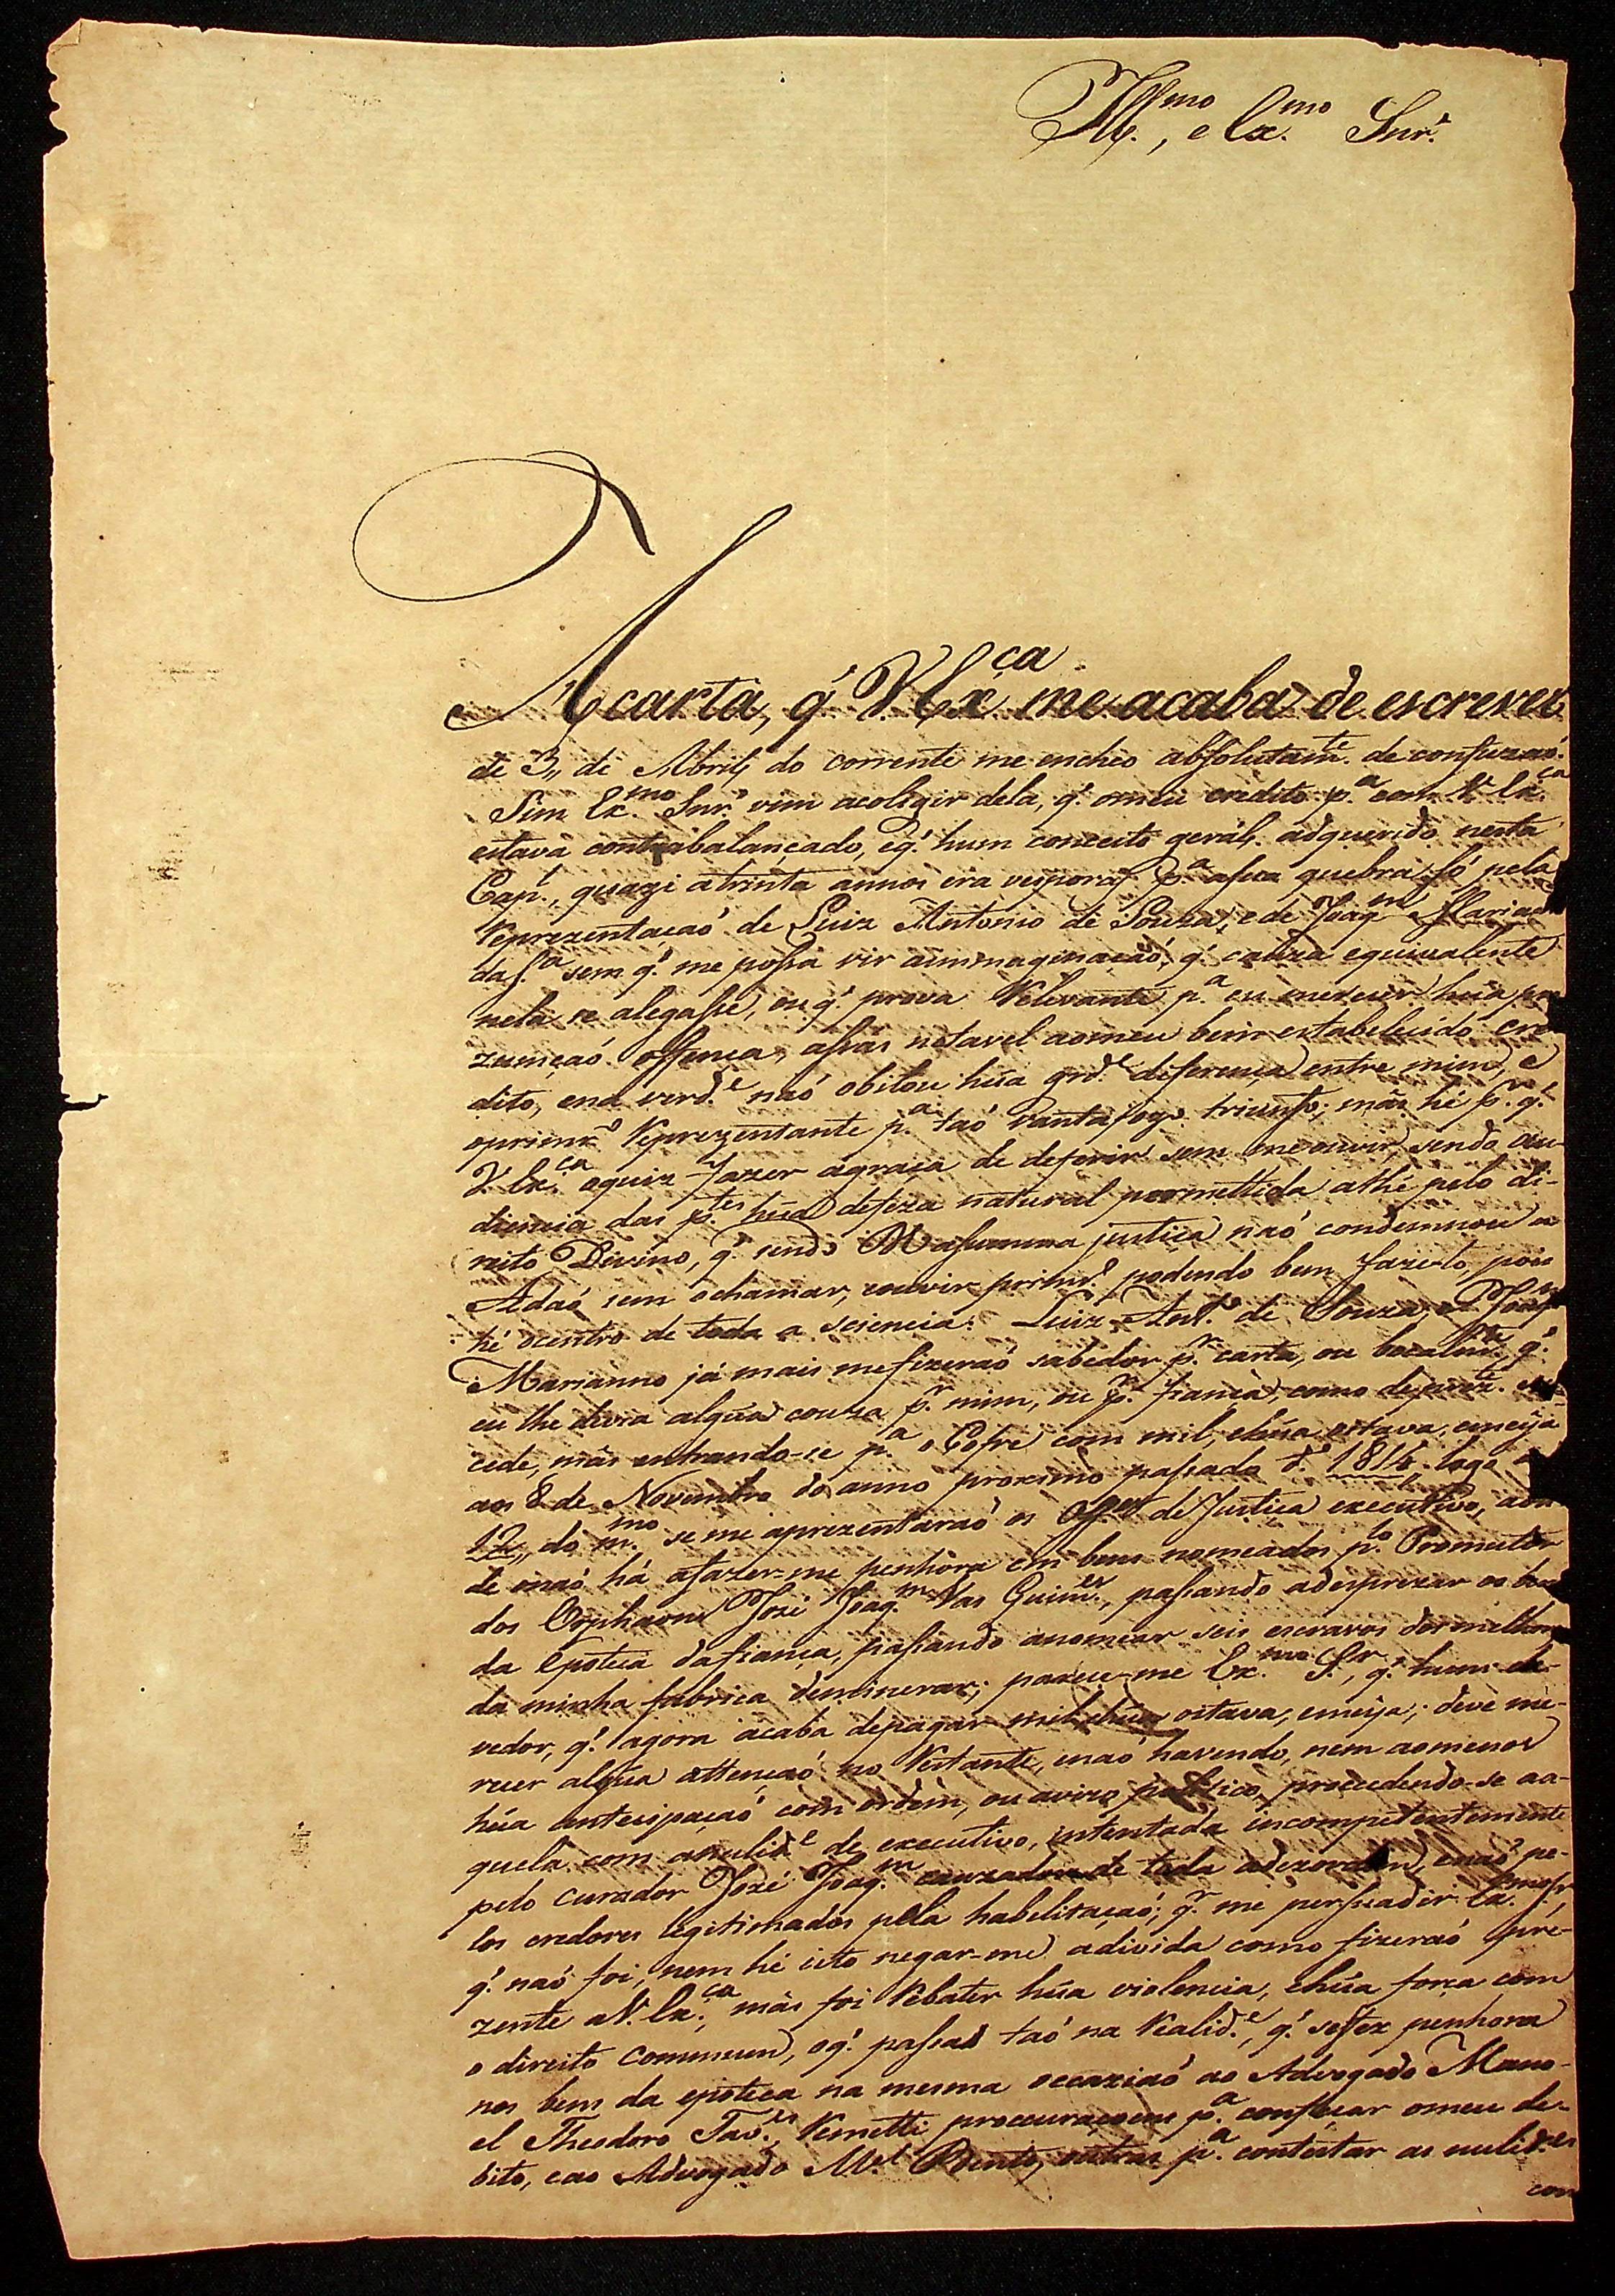 Ill.mo, e Ex.mo Snr.
A carta, q' V Ex.ca me acaba de escrever
de 3,, de Abril do corrente me encheo absolutam.te de confuzaó.
Sim Ex.mo Snr. vim acoligir dela, q' omeu credito p.a com V. Ex.ca
estava contrabalançado, eq' hum conceito geral adquerido nesta
Cap., quazi atrinta annos era vespora p.a asua quebra só pela
Reprezentaçaó de Luiz Antonio de Souza, e de Joaq.m Mariano
da S.a sem q' me possa vir aimmaginaçaó, q' cauza equivalente
nela se alegasse, ou q' prova Relevante p.a eu merecer hũa pre
zumçaó offença, assás notavel aomeu bem estabelecido cre
dito, ena verd.e naó obitou hũa grd.e deferença entre mim, e
oprimr.o Reprezentante p.a taó vantajozo triunfo; más hé p.r q'
V. Ex.ca oquiz fazer agraça de deferir sem meouvir, sendo au-
diencia das p.tes hũa defeza natural permettida athé pelo di-
reito Divino, q' sendo justiça naó condemnou a
Adaó sem ochamar, eouvir primr.o podendo bem fazelo, pois
hé ocentro de toda a sciencia. Luiz Ant.o de Souza, e Joaq.m
Marianno já mais mefizeraó sabedor p.r carta, ou bocalm.te q'
eu lhe devia algũa couza p.r mim, ou p.r fiança, como
cede, más entrando-se p.a o Cofre com mil, ehũa oitava, emeija
aos 8 de Novembro do anno proximo passado d' 1814 logo a
12,, do m.mo se me aprezentaraó os Off.es de Justiça executivo, aon
de naó há afazer-me penhóra em bens nomeados p.lo Promutor
dos Orphaons Jozé Joaq.m Vas Guim.es, passando adesprezar os bens
da epoteca dafiança, passando anomear seis escravos dosmilhores
da minha fabrica deminerar; parece-me Ex.mo S.r, q' hum de-
vedor, q' agora acaba depagar mil ehũa oitava, emeija; deve me-
recer algũa attençaó no Restante, enaó havendo, nem aomenos
hũa antecipaçaó com ordem, ou avizo procedendo-se aa-
quela com anulid.e de executivo, intentada incompetentemente
pelo curador Jozé Joaq.m cauzador de toda adezordem, enaó pe-
los credores legitimados pela habelitaçaó; q.r me persuadir Ex.mo Sr.
q' naó foi, nem hé isto negar-me adivida como fizeraó pre-
zente aV. Ex.ca, más foi Rebater hũa violencia, ehũa força com
o direito commum, oq' passa taó na Realid.e, q' sefez penhora
nos bens da epoteca na mesma occaziaó ao Advogado Mano-
el Theodoro Tav.es, Remetti procuraçoens p.a confeçar omeu de-
bito, eao Advogado M.el Bento, outras p.a contestar as nulid.es
con